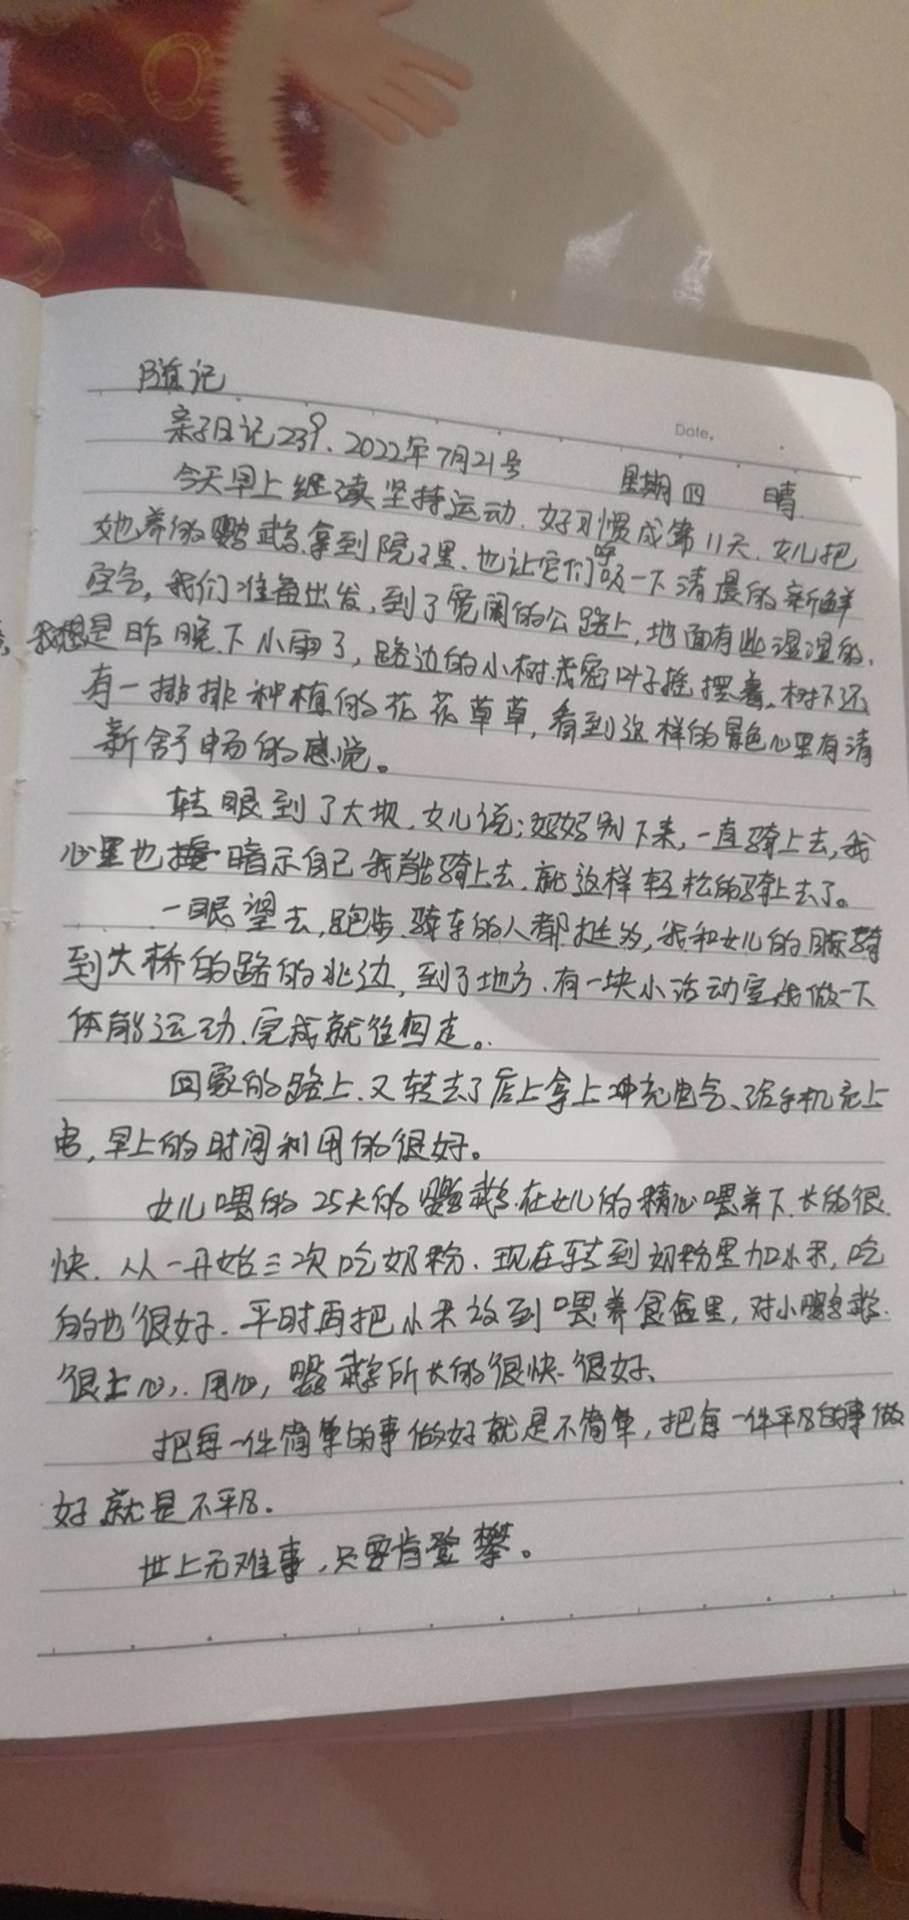 随记
Date.
亲子日记239. 2022年7月21号 星期四 晴
今天早上继续坚持运动. 好习惯成第11天. 女儿把
她养的鹦鹉拿到院子里. 也让它们呼吸一下清晨的新鲜
空气, 我们准备出发, 到了宽阔的公路上, 地面有些湿湿的,
我想是昨晚下小雨了, 路边的小树茂密叶子摇摆着. 树下还
有一排排种植的花花草草, 看到这样的景色心里有清
新舒畅的感觉。
转眼到了大坝, 女儿说: 妈妈别下来, 一直骑上去, 我
心里也暗示自己我能骑上去. 就这样轻松的骑上去了。
一眼望去, 跑步. 骑车的人都挺多, 我和女儿的骑
到大桥的路的北边, 到了地方. 有一块小活动室我做一下
体能运动. 完成就往回走。
回家的路上. 又转去了店上拿上冲充电气、给手机充上
电, 早上的时间利用的很好。
女儿喂的25天的鹦鹉. 在女儿的精心喂养下. 长的很
快. 从一开始三次吃奶粉. 现在转到奶粉里加小米, 吃
的也很好. 平时再把小米放到喂养食盒里, 对小鹦鹉
很上心, 用心, 鹦鹉所长的很快. 很好、
把每一件简单的事做好就是不简单, 把每一件平凡的事做
好就是不平凡.
世上无难事, 只要肯登攀。